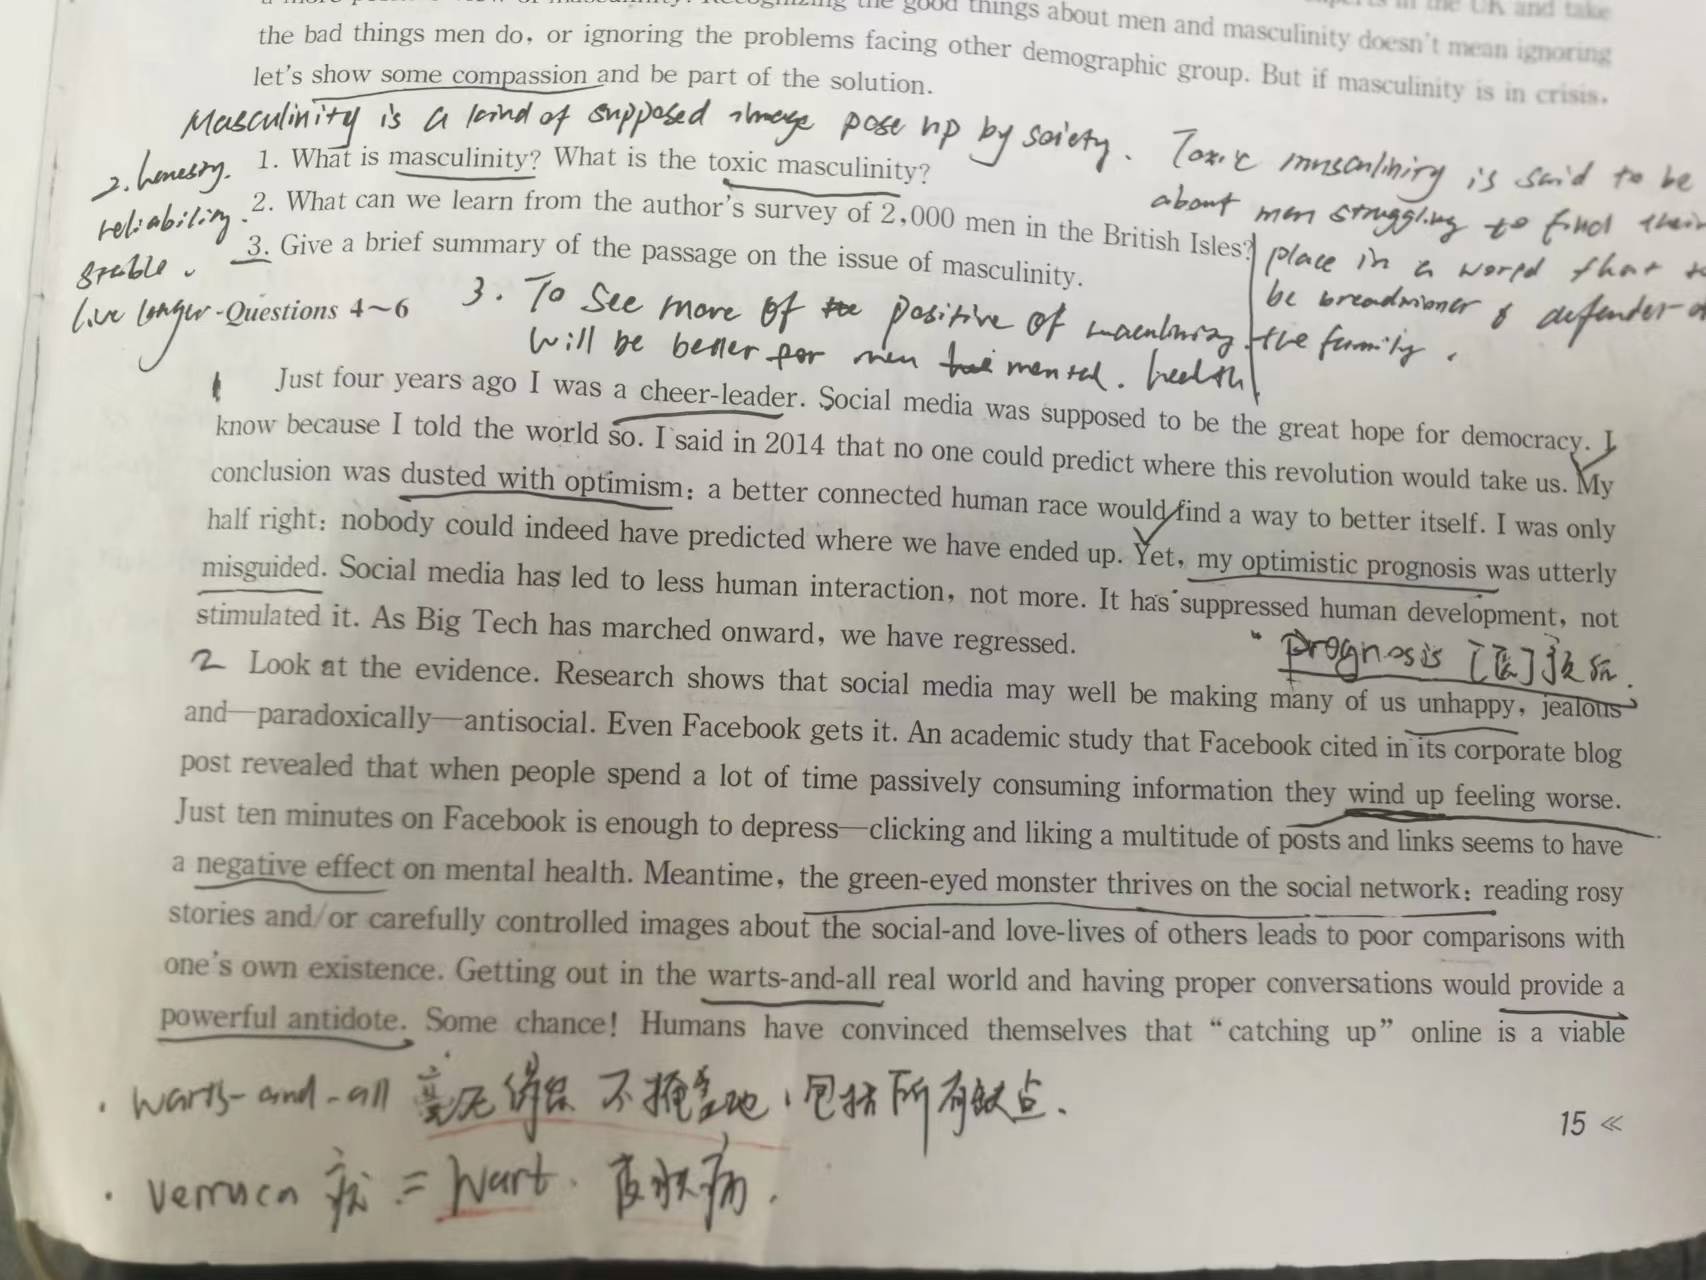 the good things about men and masculinity doesn't mean ignoring
the bad things men do, or ignoring the problems facing other demographic group. But if masculinity is in crisis,
let's show some compassion and be part of the solution.
Masculinity is a kind of supposed image pose up by society. Toxic masculinity is said to be
about men struggling to find their
place in a world that
be breadwinner & defender of
the family.
2. honesty.
reliability.
stable.
live longer
1. What is masculinity? What is the toxic masculinity?
2. What can we learn from the author's survey of 2,000 men in the British Isles?
3. Give a brief summary of the passage on the issue of masculinity.
Questions 4~6
3. To see more of the positive of masculinity
will be better for men mental. health
1 Just four years ago I was a cheer-leader. Social media was supposed to be the great hope for democracy. I
know because I told the world so. I said in 2014 that no one could predict where this revolution would take us. My
conclusion was dusted with optimism: a better connected human race would find a way to better itself. I was only
half right: nobody could indeed have predicted where we have ended up. Yet, my optimistic prognosis was utterly
misguided. Social media has led to less human interaction, not more. It has suppressed human development, not
stimulated it. As Big Tech has marched onward, we have regressed.
prognosis [医]预后.
2 Look at the evidence. Research shows that social media may well be making many of us unhappy, jealous
and—paradoxically—antisocial. Even Facebook gets it. An academic study that Facebook cited in its corporate blog
post revealed that when people spend a lot of time passively consuming information they wind up feeling worse.
Just ten minutes on Facebook is enough to depress—clicking and liking a multitude of posts and links seems to have
a negative effect on mental health. Meantime, the green-eyed monster thrives on the social network: reading rosy
stories and/or carefully controlled images about the social-and love-lives of others leads to poor comparisons with
one's own existence. Getting out in the warts-and-all real world and having proper conversations would provide a
powerful antidote. Some chance! Humans have convinced themselves that "catching up" online is a viable
· warts-and-all 毫无保留 不掩饰地, 包括所有缺点.
15 «
· verruca 疣 = Wart. 皮肤病.